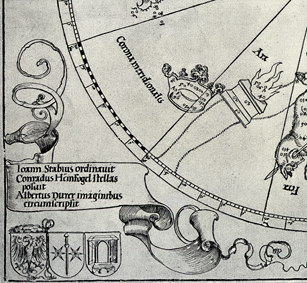 Corona meridionalis
Ara
Ioann Stabius ordinauit
Conradus Heinfogel stellas
posuit
Albertus Durer imaginibus
circumscripsit